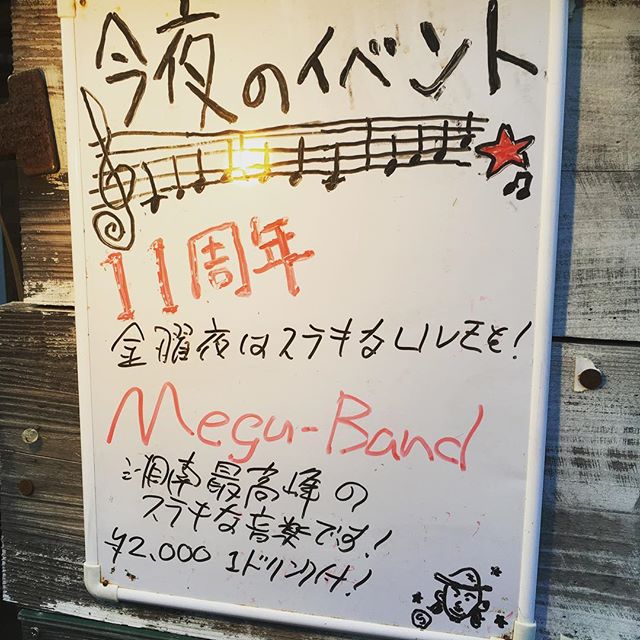 今夜のイベント
11周年
金曜夜はステキなLIVEを!
Megu-Band
湘南最高峰の
ステキな音楽です!
¥2,000 1ドリンク付!